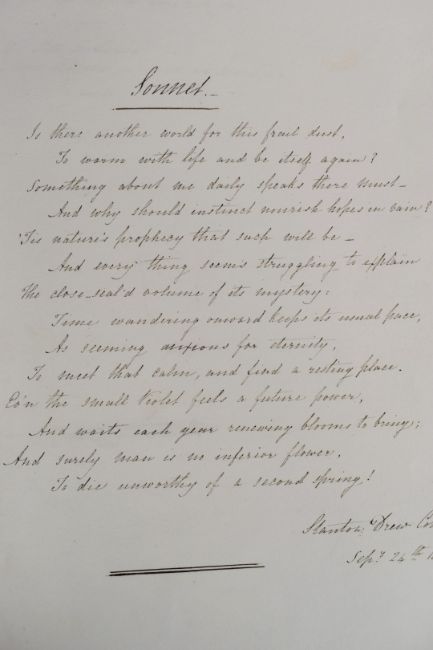 Sonnet.
Is there another world for this frail dust,
To warm with life and be itself again?
Something about me daily speaks there must—
And why should instinct nourish hopes in vain?
'Tis nature's prophecy that such will be—
And every thing seems struggling to explain
The close seal'd volume of its mystery:
Time wandering onward keeps its usual pace,
As seeming anxious for eternity,
To meet that calm, and find a resting place.
E'en the small violet feels a future power,
And waits each year renewing blooms to bring;
And surely man is no inferior flower,
To die unworthy of a second spring!
Drew
Sepr 24th